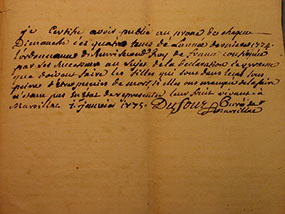 je certifie avoir publié au prone de chaque
Dimanche des quatre tems de l'année derniere 1774
l'ordonnance de henri second Roy de france confirmée
par ses successeurs au sujet de la declaration de grossesse
que doivent faire les filles qui sont dans le cas sous
peine d'etre punies de mort, si elles ont manqué de le faire
n'etant pas en etat de representer leur fruit vivant à
Marvillac 1. janvier 1775. Dufour Curé de
Marvillac